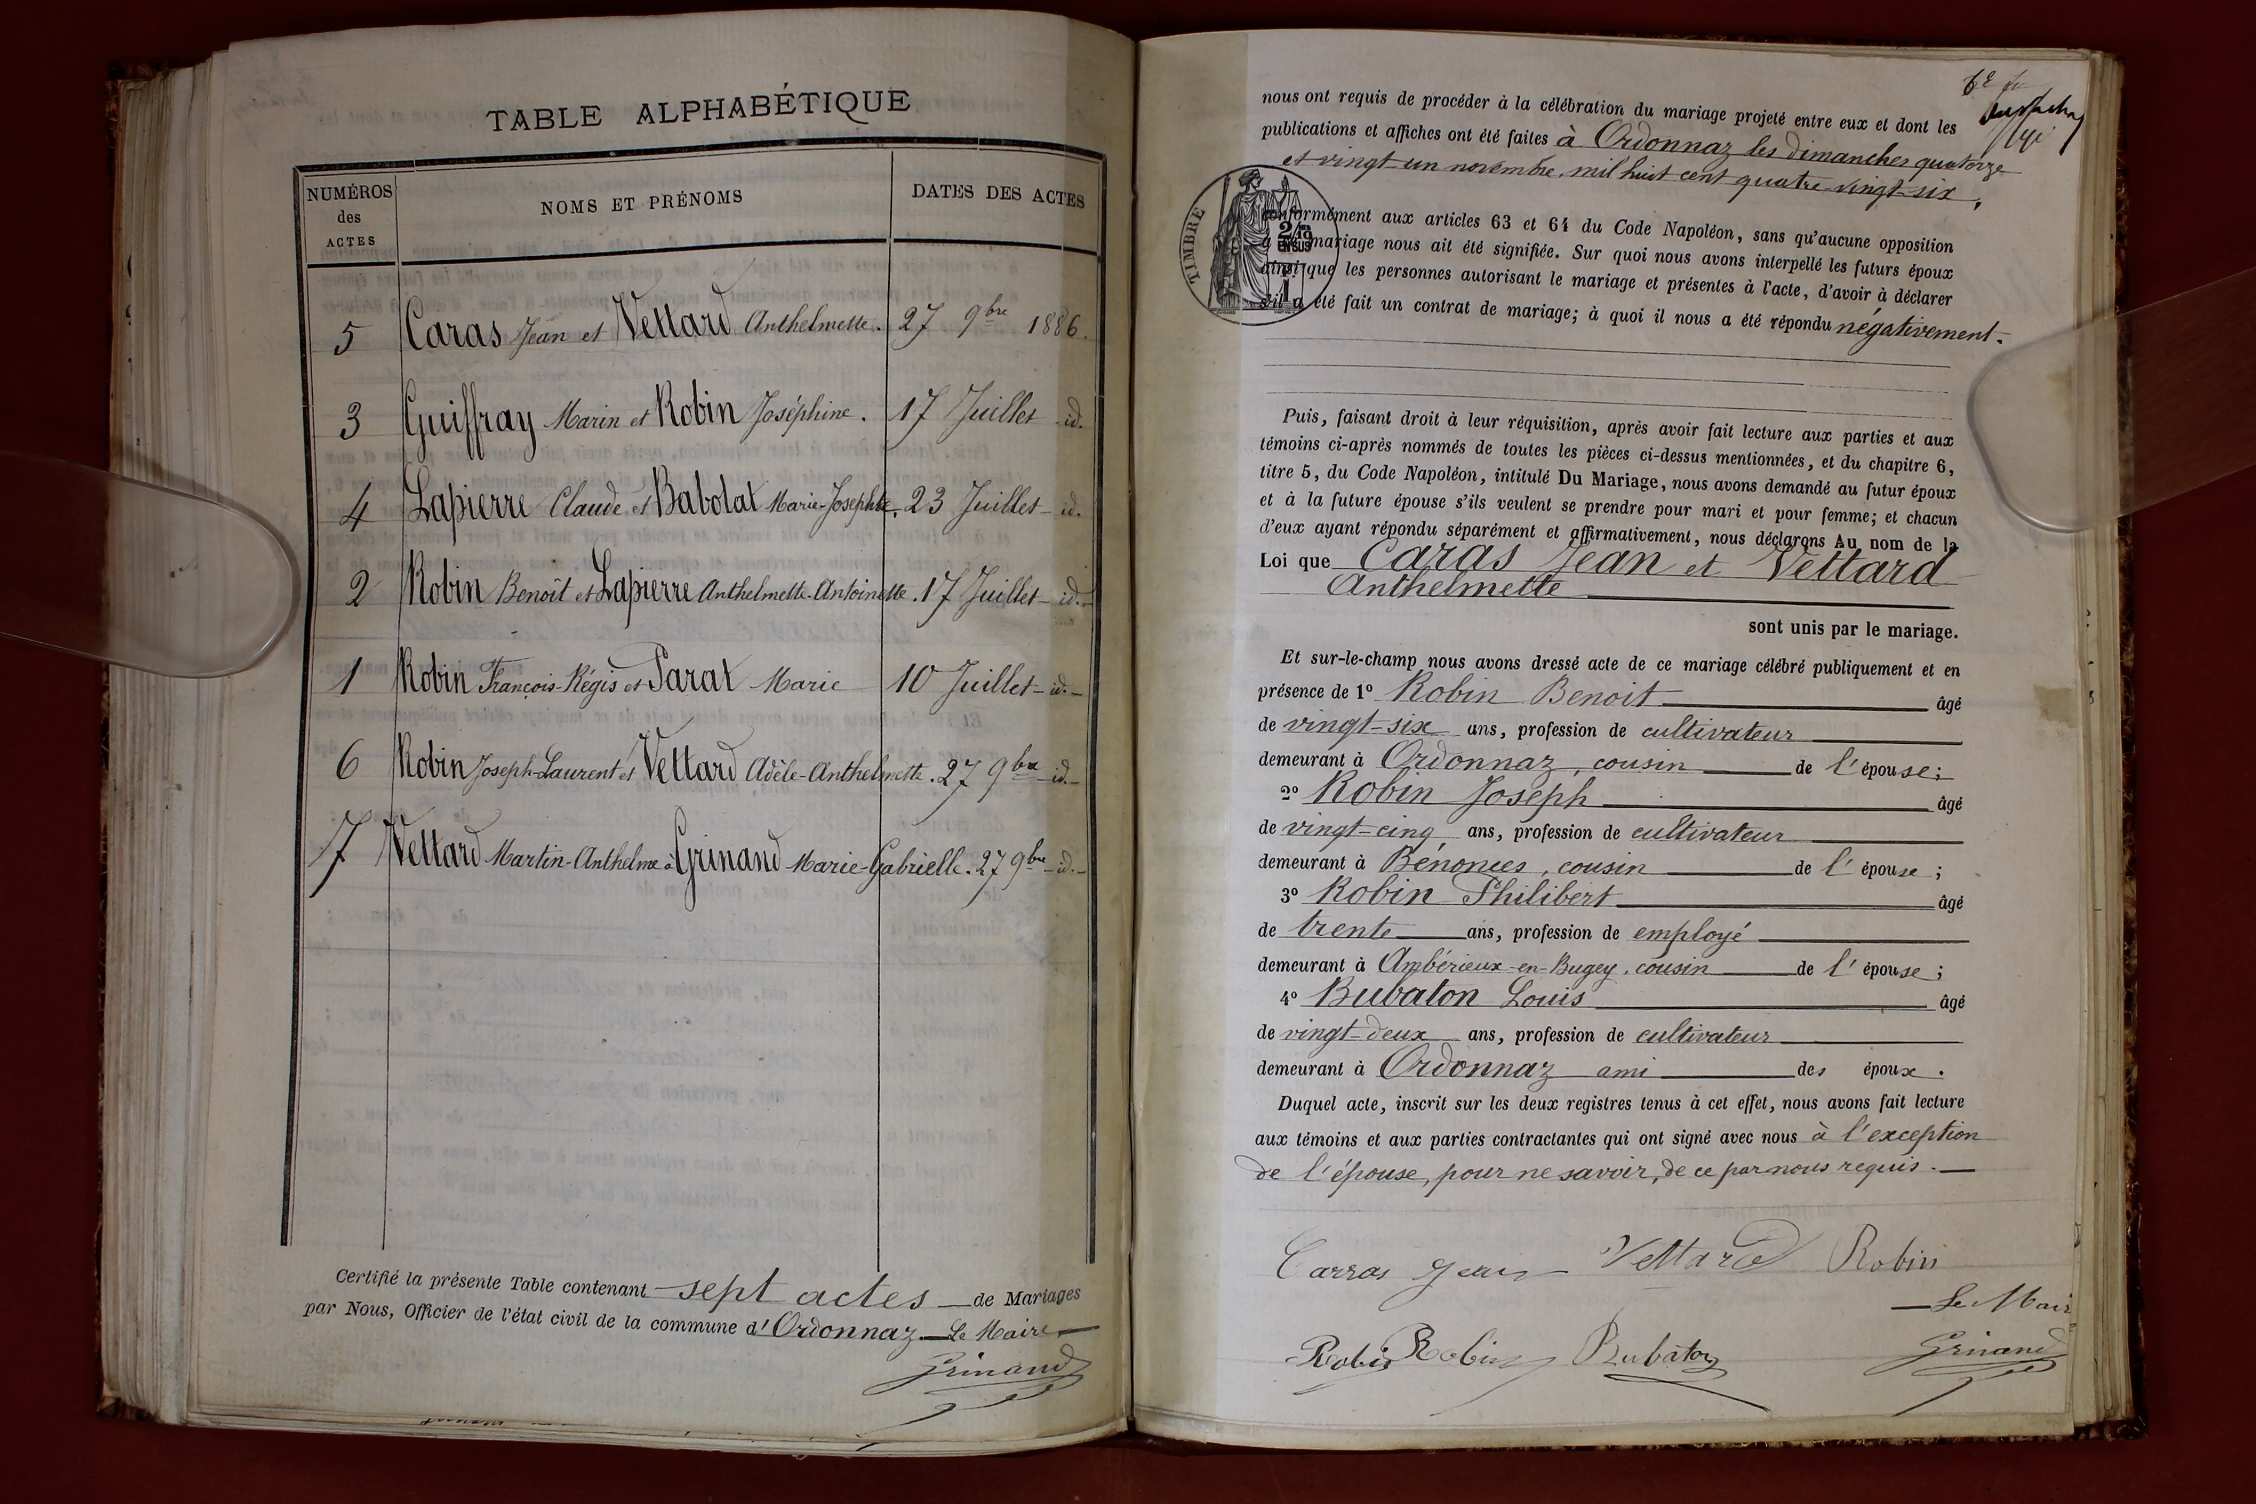 TABLE ALPHABÉTIQUE
NUMÉROS des ACTES
NOMS ET PRÉNOMS
DATES DES ACTES
5 Caras Jean et Vettard Anthelmette. 27 9bre 1886.
3 Guiffray Marin et Robin Joséphine. 17 Juillet id.
4 Lapierre Claude et Babolat Marie-Josephte. 23 Juillet id.
2 Robin Benoît et Lapierre Anthelmette-Antoinette. 17 Juillet id.
1 Robin François-Régis et Parat Marie 10 Juillet id.
6 Robin Joseph-Laurent et Vettard Adèle-Anthelmette. 27 9bre id.
7 Vettard Martin-Anthelme à Grinand Marie-Gabrielle. 27 9bre id.
Certifié la présente Table contenant sept actes de Mariages
par Nous, Officier de l'état civil de la commune d'Ordonnaz. Le Maire
Grinand
nous ont requis de procéder à la célébration du mariage projeté entre eux et dont les
publications et affiches ont été faites à Ordonnaz les dimanches quatorze
et vingt-un novembre, mil huit cent quatre-vingt-six,
TIMBRE
conformément aux articles 63 et 64 du Code Napoléon, sans qu'aucune opposition
à ce mariage nous ait été signifiée. Sur quoi nous avons interpellé les futurs époux
ainsi que les personnes autorisant le mariage et présentes à l'acte, d'avoir à déclarer
s'il a été fait un contrat de mariage; à quoi il nous a été répondu négativement.
Puis, faisant droit à leur réquisition, après avoir fait lecture aux parties et aux
témoins ci-après nommés de toutes les pièces ci-dessus mentionnées, et du chapitre 6,
titre 5, du Code Napoléon, intitulé Du Mariage, nous avons demandé au futur époux
et à la future épouse s'ils veulent se prendre pour mari et pour femme; et chacun
d'eux ayant répondu séparément et affirmativement, nous déclarons Au nom de la
Loi que Caras Jean et Vettard
Anthelmette
sont unis par le mariage.
Et sur-le-champ nous avons dressé acte de ce mariage célébré publiquement et en
présence de 1º Robin Benoit âgé
de vingt-six ans, profession de cultivateur
demeurant à Ordonnaz, cousin de l'épouse;
2º Robin Joseph âgé
de vingt-cinq ans, profession de cultivateur
demeurant à Bénonces, cousin de l'épouse;
3º Robin Philibert âgé
de trente ans, profession de employé
demeurant à Ambérieux-en-Bugey, cousin de l'épouse;
4º Bubaton Louis âgé
de vingt-deux ans, profession de cultivateur
demeurant à Ordonnaz ami des époux.
Duquel acte, inscrit sur les deux registres tenus à cet effet, nous avons fait lecture
aux témoins et aux parties contractantes qui ont signé avec nous à l'exception
de l'épouse, pour ne savoir, de ce par nous requis.
Carras Jean Vettard Robin
Le Mair
Robin Robin Rubaton Grinand